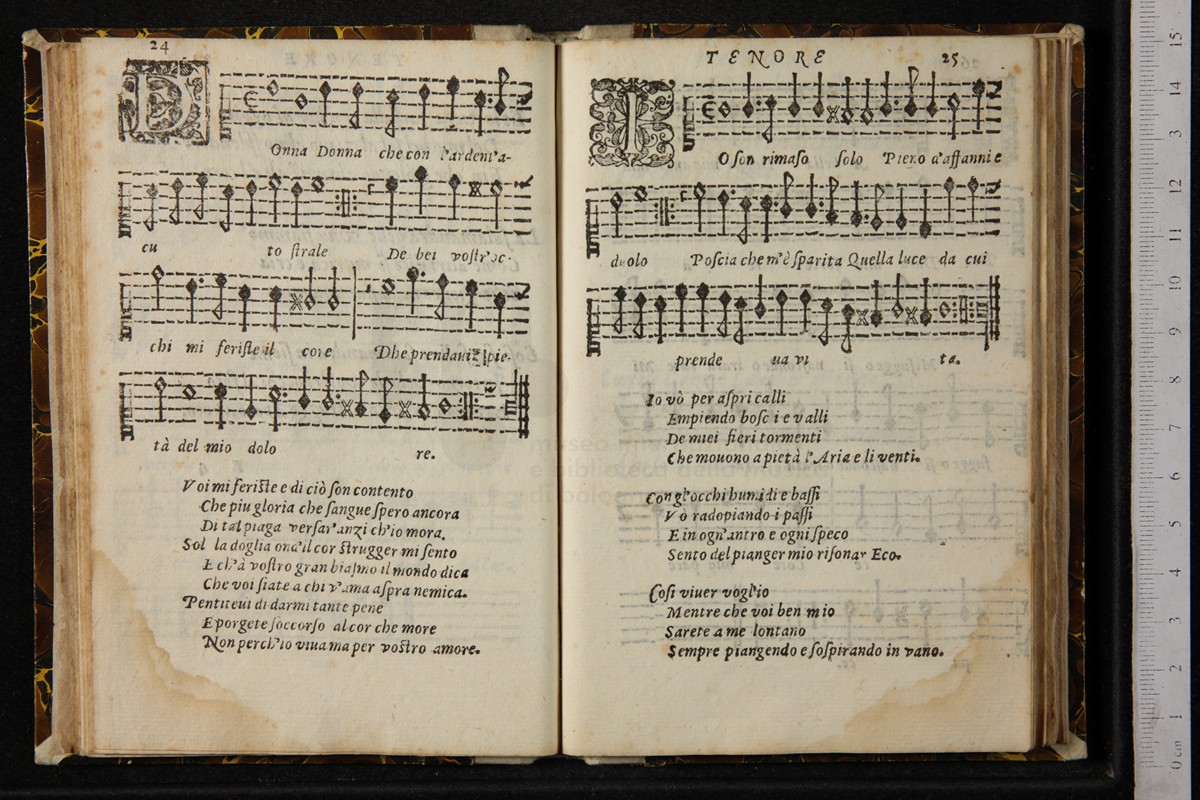 24
D
Onna Donna che con l'ardent'a-
cu to ſtrale De bei voſtr'oc-
chi mi feriſte il core Dhe prendaui pie-
tà del mio dolo re.
Voi mi feriſte e di ciò ſon contento
Che piu gloria che ſangue ſpero ancora
Di tal piaga verſar' anzi ch'io mora.
Sol la doglia ond'il cor ſtrugger mi ſento
E ch'à voſtro gran biaſmo il mondo dica
Che voi ſiate a chi v'ama aſpra nemica.
Pentiteui di darmi tante pene
E porgete ſoccorſo al cor che more
Non perch'io viua ma per voſtro amore.
TENORE 25
I
O ſon rimaſo ſolo Pieno d'affanni e
duolo Poſcia che m'è ſparita Quella luce da cui
prende ua vi ta.
Io vò per aſpri calli
Empiendo boſc i e valli
De miei fieri tormenti
Che mouono a pietà l'Aria e li venti.
Con gl'occhi humidi e baſſi
Vò radopiando i paſſi
E in ogn'antro e ogni ſpeco
Sento del pianger mio riſonar Eco.
Coſi viuer voglio
Mentre che voi ben mio
Sarete a me lontano
Sempre piangendo e ſoſpirando in vano.